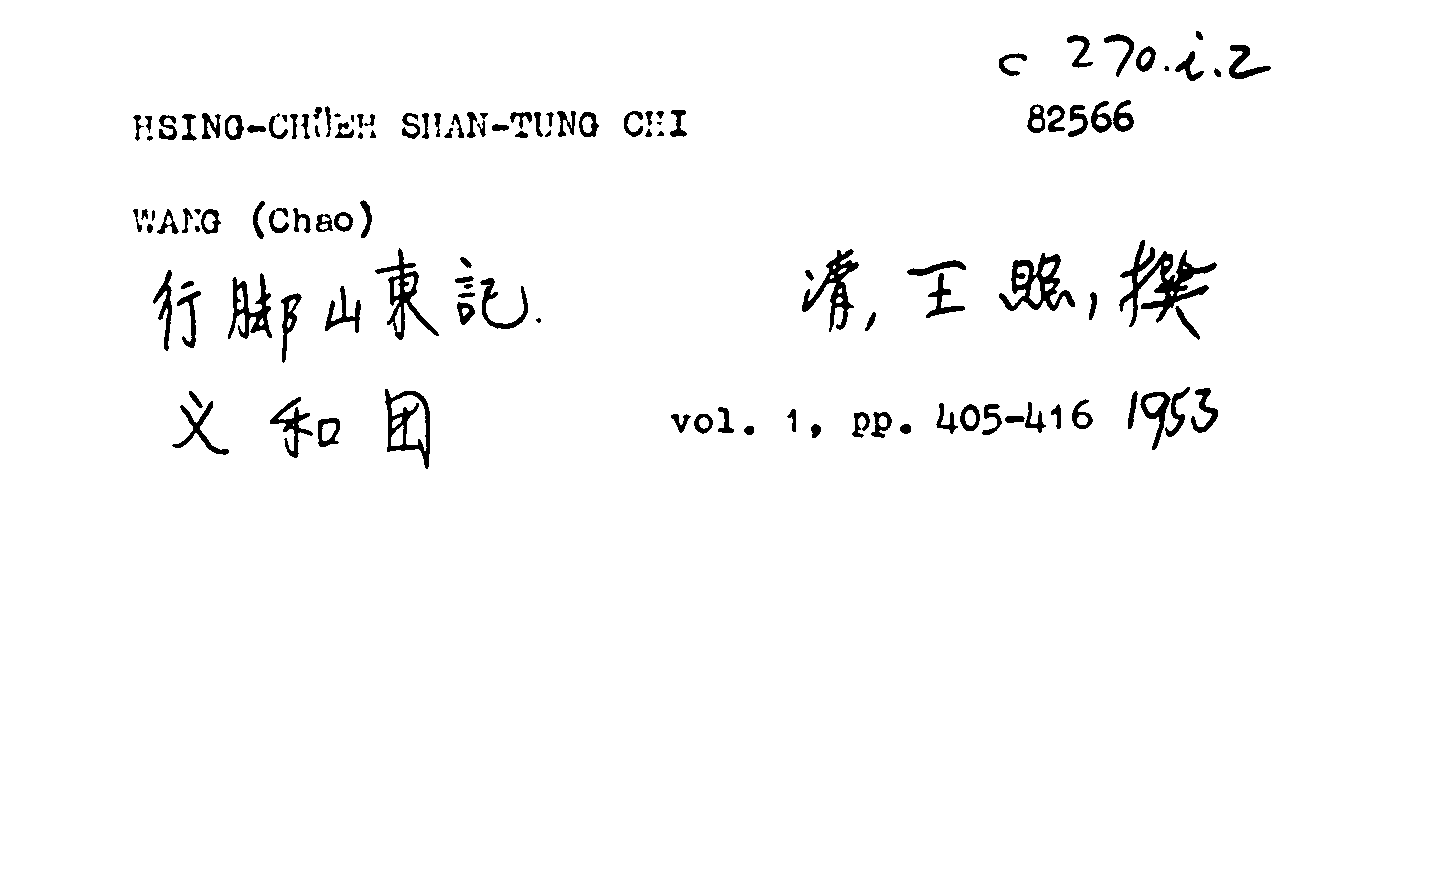 c 270.i.2
HSING-CHÜEH SHAN-TUNG CHI 82566
WANG (Chao)
行脚山東記. 清,王照,撰
义和团 vol. 1, pp. 405-416 1953